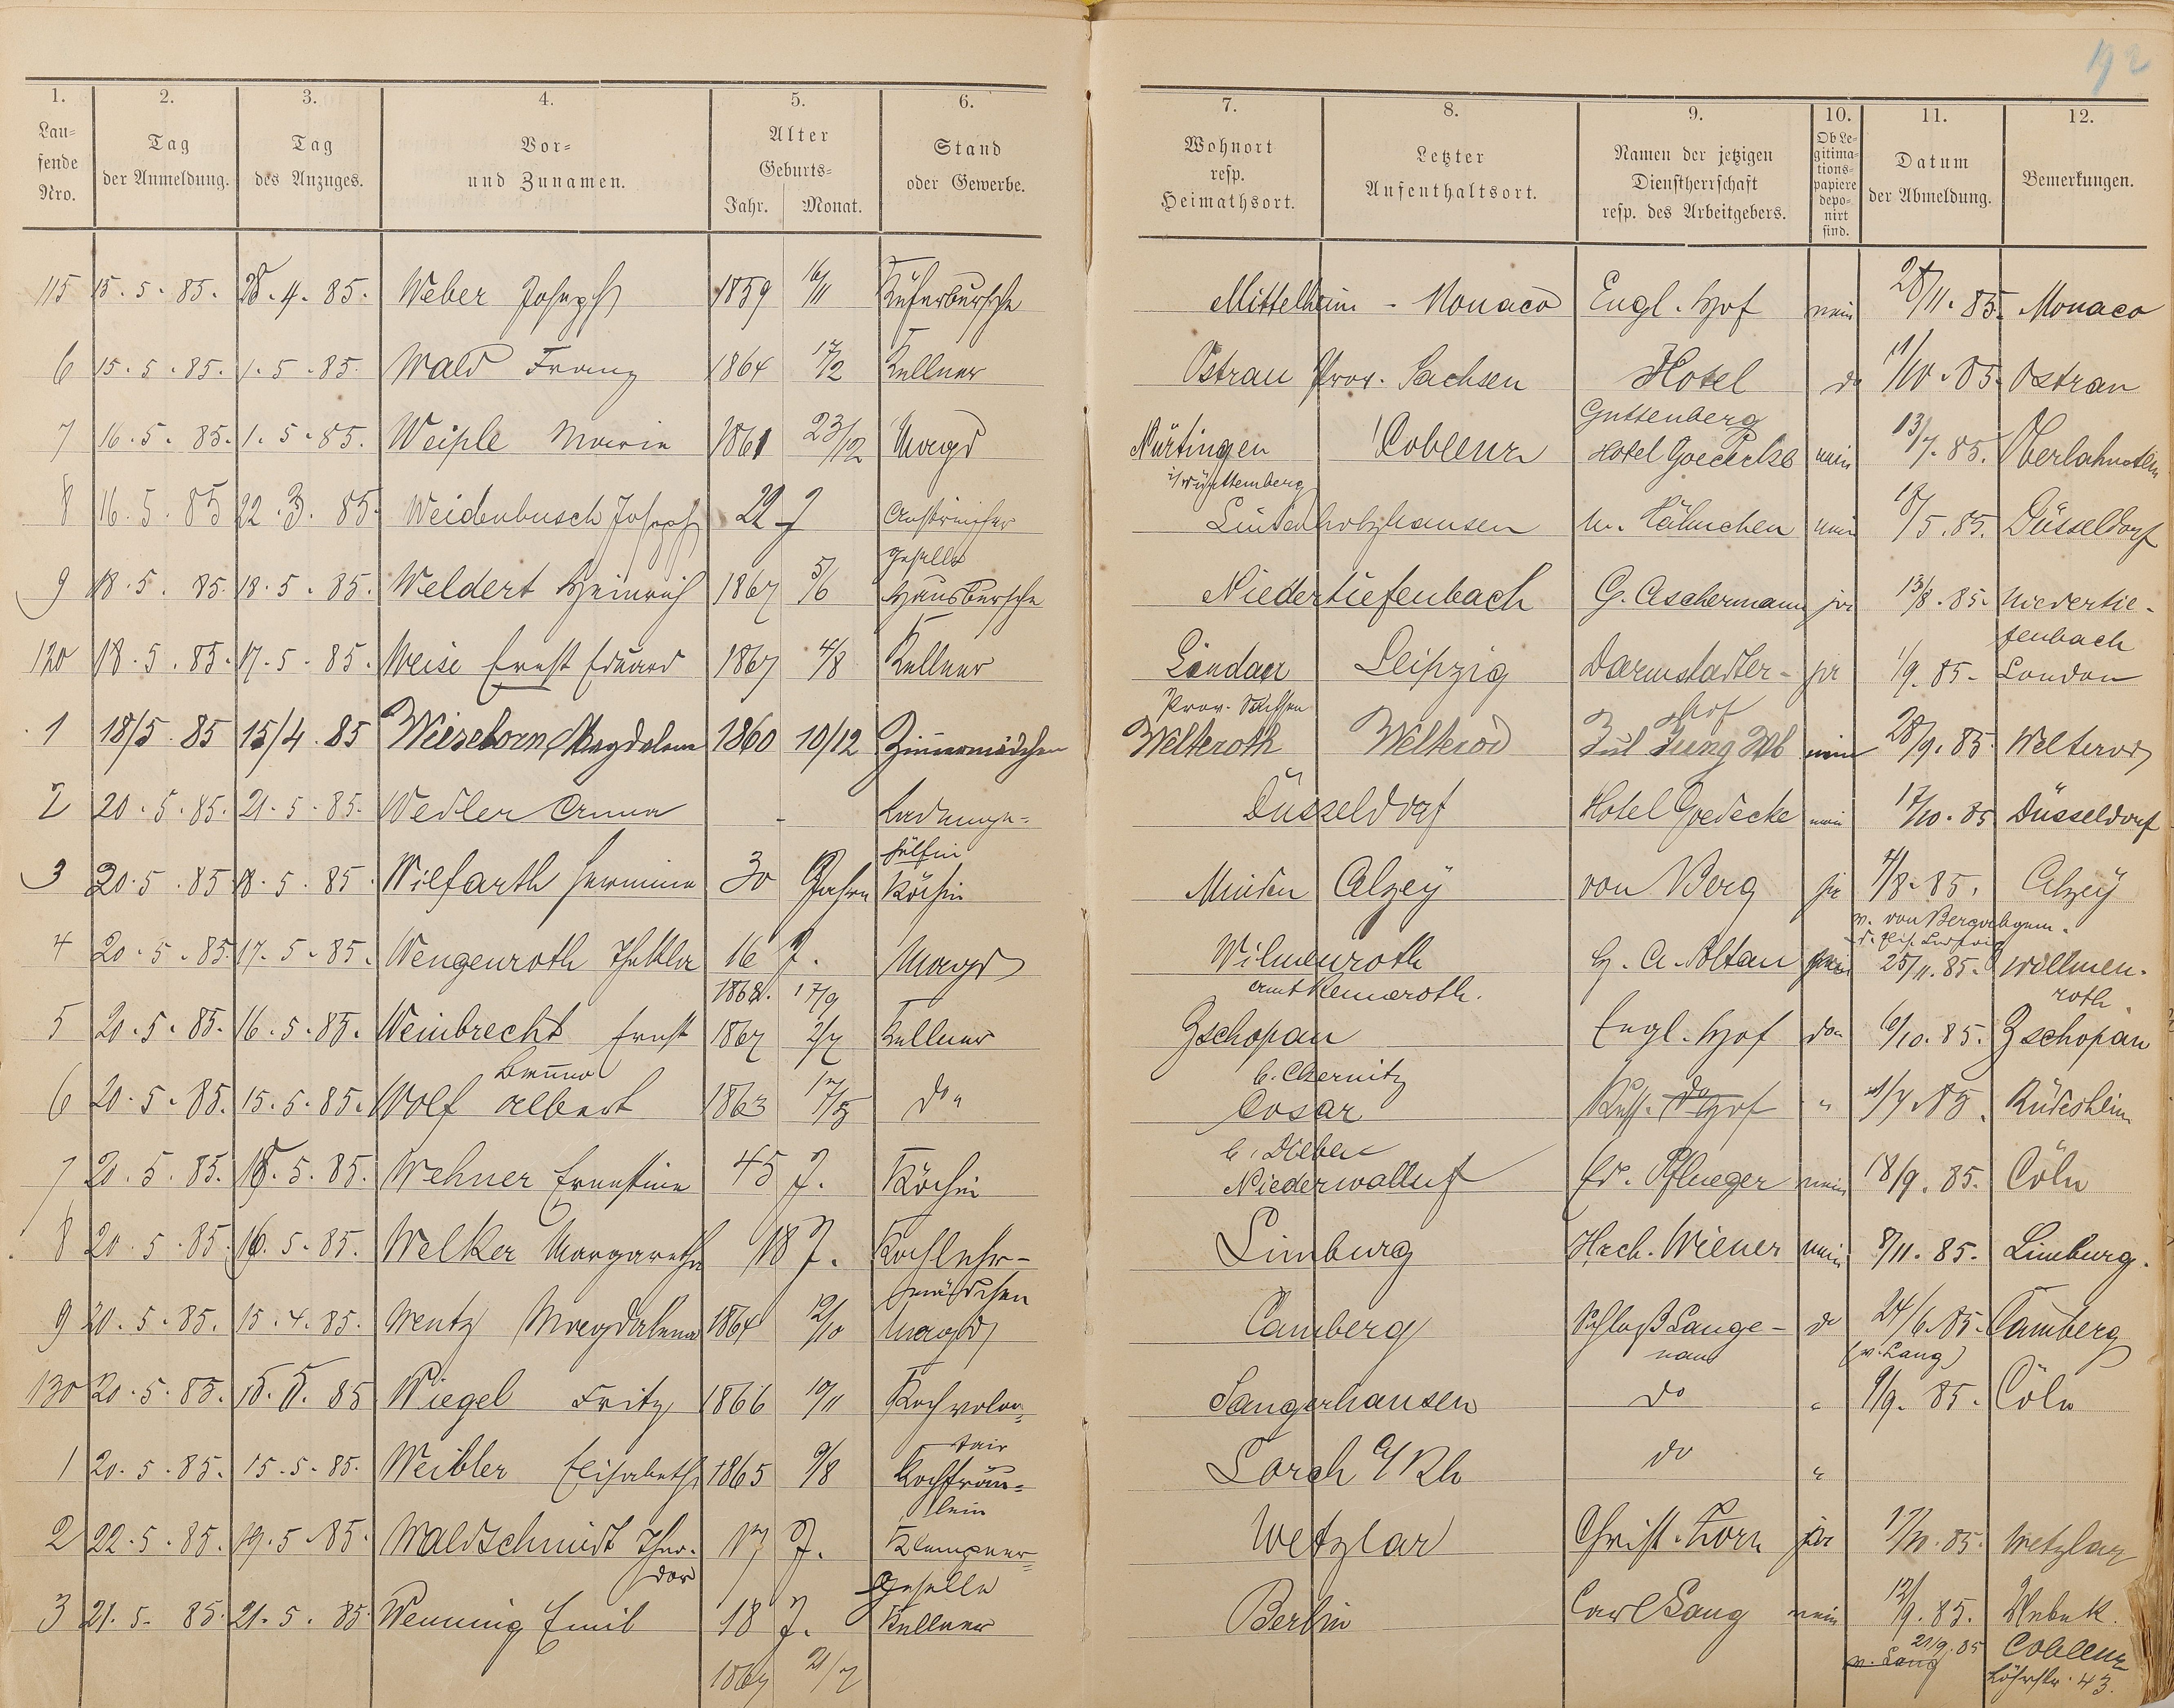 192
1. 2. 3. 4. 5. 6. 7. 8. 9. 10. 11. 12.
Lau-
fende
Nro.
Tag
der Anmeldung.
Tag
des Anzuges.
Vor-
und Zunamen.
Alter
Geburts-
Jahr. Monat.
Stand
oder Gewerbe.
Wohnort
resp.
Heimathsort.
Letzter
Aufenthaltsort.
Namen der jetzigen
Dienstherrschaft
resp. des Arbeitgebers.
Ob Le-
gitima-
tions-
papiere
depo-
nirt
sind.
Datum
der Abmeldung.
Bemerkungen.
115 15.5.85. 28.4.85. Weber Joseph 1859 16/11 Küferbursche Mittelheim - Monaco Engl. Hof nein 28/11.85. Monaco
6 15.5.85. 1.5.85. Wald Franz 1864 17/2 Kellner Ostrau Prov. Sachsen Hotel do 11/10.85. Ostrau
Guttenberg
7 16.5.85. 1.5.85. Weiple Marie 1861 23/12 Magd Nürtingen Coblenz Hotel Goedecke nein 13/7.85. Oberlahnstein
i/Württemberg
8 16.5.85 22.3.85. Weidenbusch Joseph 22 J Anstreicher Lindenholzhausen W. Hähnchen nein 18/5.85. Düsseldorf
geselle
9 18.5.85. 18.5.85. Weldert Heinrich 1867 5/6 Hausbursche Niedertiefenbach G. Aschermann ja 13/8.85. Niedertie-
fenbach
120 18.5.85. 17.5.85. Weise Ernst Eduard 1867 4/8 Kellner Landau Leipzig Darmstadter- ja 1/9.85- London
Prov. Sachsen Hof
1 18/5.85 15/4.85 Wieseborn Magdalena 1860 10/12 Zimmermädchen Welteroth Welterod Jul Jung Wb nein 28/9.85. Welterod
2 20.5.85. 21.5.85. Wedler Anna - Ladenge- Düsseldorf Hotel Goedecke nein 17/10.85 Düsseldorf
hülfin
3 20.5.85 18.5.85. Wilfarth Hermine 30 Jahre Köchin Minden Alzey von Berg ja 4/8.85. Alzey
v. von Berg
4 20.5.85. 17.5.85. Wengenroth Thekla 16 J. Magd Wilmenroth H. A. Oltau 25/11.85. Willmen-
1868. 17/9 Amt Rennroth. roth.
5 20.5.85. 16.5.85. Weinbrecht Ernst 1867 2/7 Kellner Zschopau Engl. Hof do 6/10.85. Zschopau
Bruno b. Chemnitz
6 20.5.85. 15.5.85. Wolf Albert 1863 17/5 do Cosar Russ. Hof " 21/7.85. Rüdesheim
b. Düben
7 20.5.85. 18.5.85. Wehner Ernestine 45 J. Köchin Niederwalluf Ed. Pflueger nein 18/9.85. Cöln
8 20.5.85. 16.5.85. Welker Margaretha 18 J. Kochlehr- Limburg Hrch. Wiener nein 8/11.85. Limburg.
mädchen
9 20.5.85. 15.4.85. Wentz Magdalena 1864 12/10 Magd Camberg Schloß Lange- do 24/6.85. Camberg
nau (v. Lang)
130 20.5.85. 15.5.85 Wiegel Fritz 1866 10/11 Kochvolon- Sangerhausen do " 9/9.85. Cöln
tair
1 20.5.85. 15.5.85. Weibler Elisabeth 1865 9/8 Kochfräu- Lorch a/Rh do "
lein
2 22.5.85. 19.5.85. Waldschmidt Theo- 17 J. Klempner- Wetzlar Christ. Korn ja 17/10.85. Wetzlar
dor geselle
3 21.5.85. 21.5.85. Wenning Emil 18 J. Kellner Berlin Carl Lang nein 12/9.85.
1867 21/7 v. Lang 21/9.85 Coblenz
Löhrstr. 43.